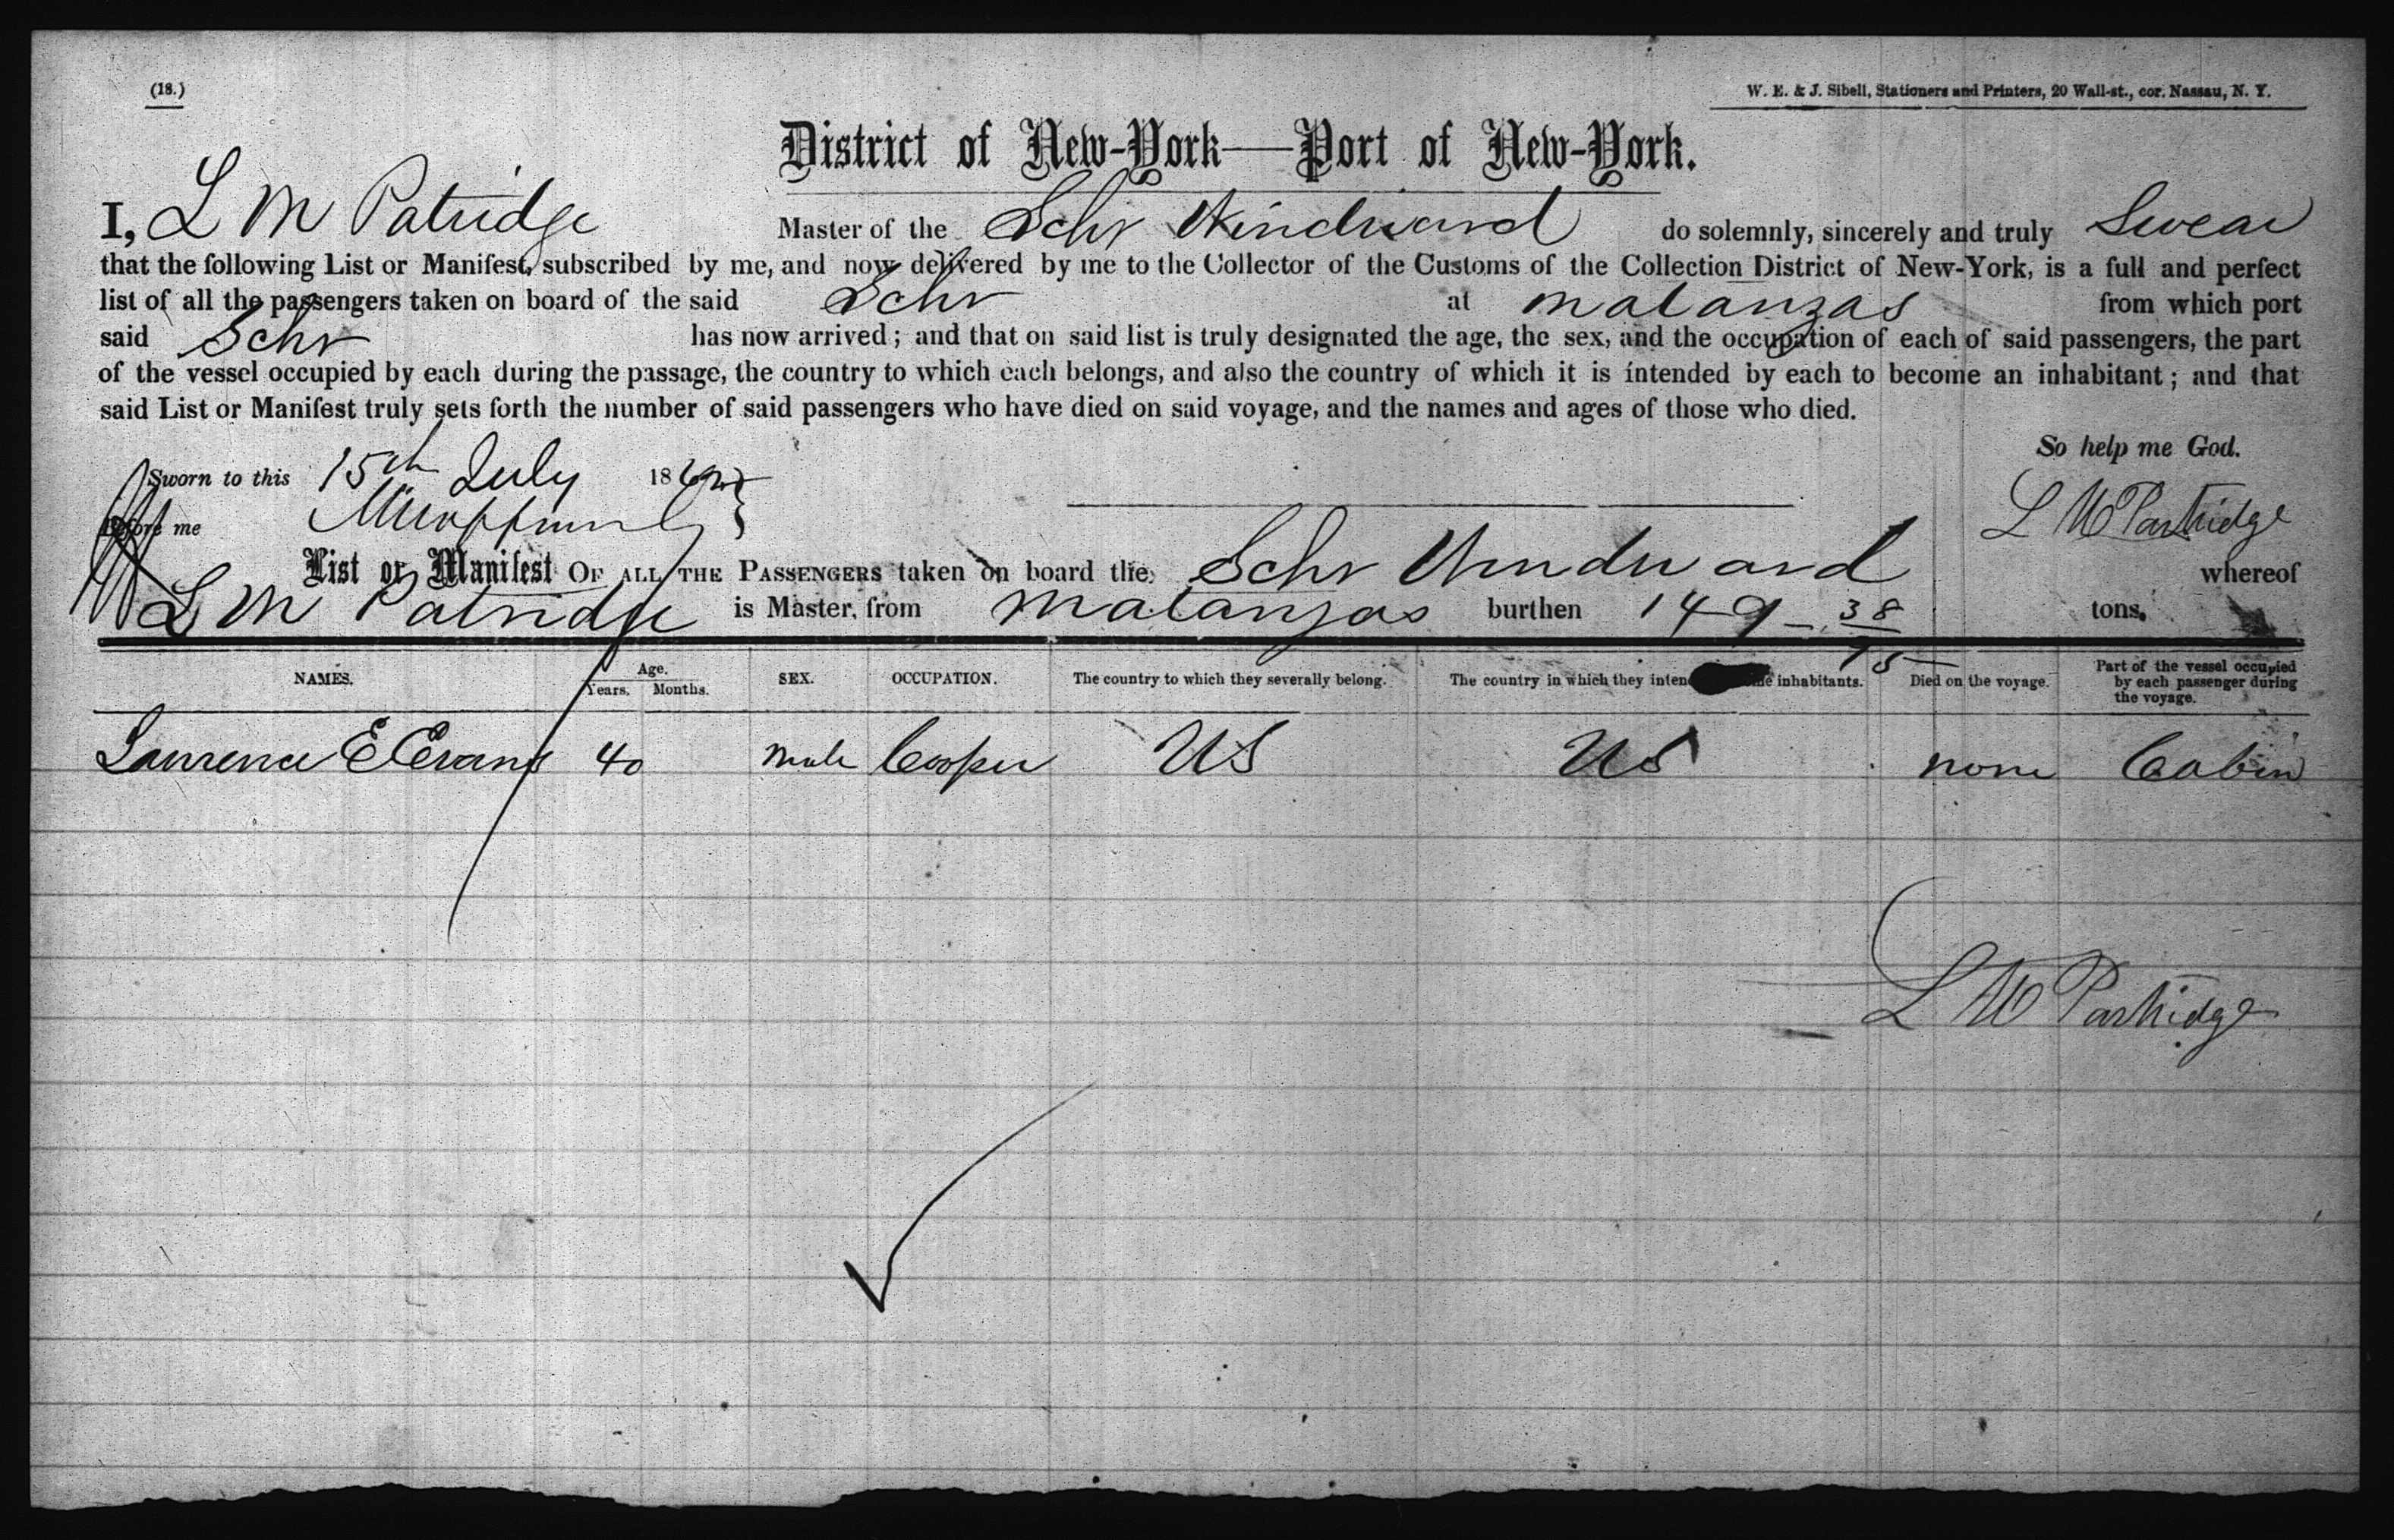 (18.)
W. E. & J. Sibell, Stationers and Printers, 20 Wall-st., cor. Nassau, N. Y.
District of New-York—Port of New-York.
I, L M Patridge Master of the Schr Windward do solemnly, sincerely and truly Swear
that the following List or Manifest, subscribed by me, and now delivered by me to the Collector of the Customs of the Collection District of New-York, is a full and perfect
list of all the passengers taken on board of the said Schr at Matanzas from which port
said Schr has now arrived; and that on said list is truly designated the age, the sex, and the occupation of each of said passengers, the part
of the vessel occupied by each during the passage, the country to which each belongs, and also the country of which it is intended by each to become an inhabitant; and that
said List or Manifest truly sets forth the number of said passengers who have died on said voyage, and the names and ages of those who died.
So help me God.
Sworn to this 15th July 186
Before me
L M Partridge
List or Manifest OF ALL THE PASSENGERS taken on board the Schr Windward whereof
L M Patridge is Master, from Matanzas burthen 149-38/95 tons.
NAMES. Age. Years. Months. SEX. OCCUPATION. The country to which they severally belong. The country in which they inten inhabitants. Died on the voyage. Part of the vessel occupied by each passenger during the voyage.
Lawrence E Evans 40 Male Cooper US US none Cabin
L M Partridge